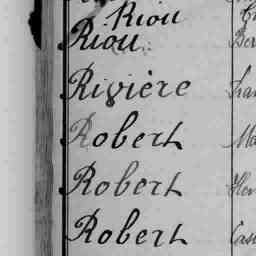 Riou
Riou
Rivière
Robert
Robert
Robert